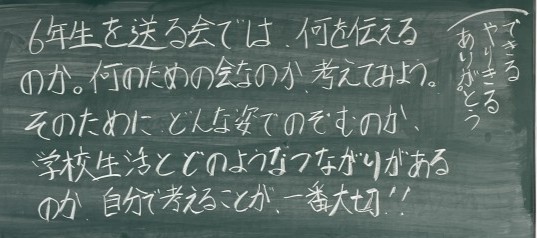 6年生を送る会では、何を伝える
のか。何のための会なのか、考えてみよう。
そのために、どんな姿でのぞむのか、
学校生活とどのようなつながりがある
のか、自分で考えることが、一番大切!!
できる
やりきる
ありがとう